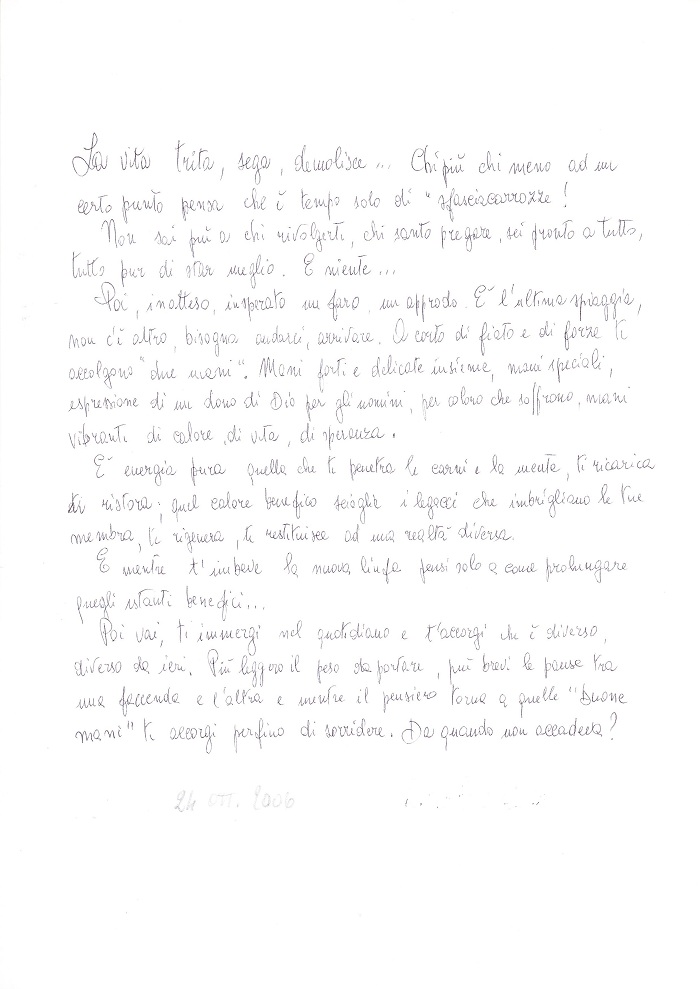 La vita trita, sega, demolisce... Chi più chi meno ad un
certo punto pensa che è tempo solo di "sfasciacarrozze!
Non sai più a chi rivolgerti, chi santo pregare, sei pronto a tutto,
tutto pur di star meglio. E niente...
Poi, inatteso, insperato un faro, un approdo. E' l'ultima spiaggia,
non c'è altro, bisogna andarci, arrivare. A corto di fiato e di forze ti
accolgono "due mani". Mani forti e delicate insieme, mani speciali,
espressione di un dono di Dio per gli uomini, per coloro che soffrono, mani
vibranti di calore, di vita, di speranza.
E' energia pura quella che ti penetra le carni e la mente, ti ricarica
ti ristora; quel calore benefico scioglie i legacci che imbrigliano le tue
membra, ti rigenera, ti restituisce ad una realtà diversa.
E mentre t'imbeve la nuova linfa pensi solo a come prolungare
quegli istanti benefici...
Poi vai, ti immergi nel quotidiano e t'accorgi che è diverso,
diverso da ieri. Più leggero il peso da portare, più brevi le pause tra
una faccenda e l'altra e mentre il pensiero torna a quelle "Buone
mani" ti accorgi perfino di sorridere. Da quando non accadeva?
24 VII. 2006